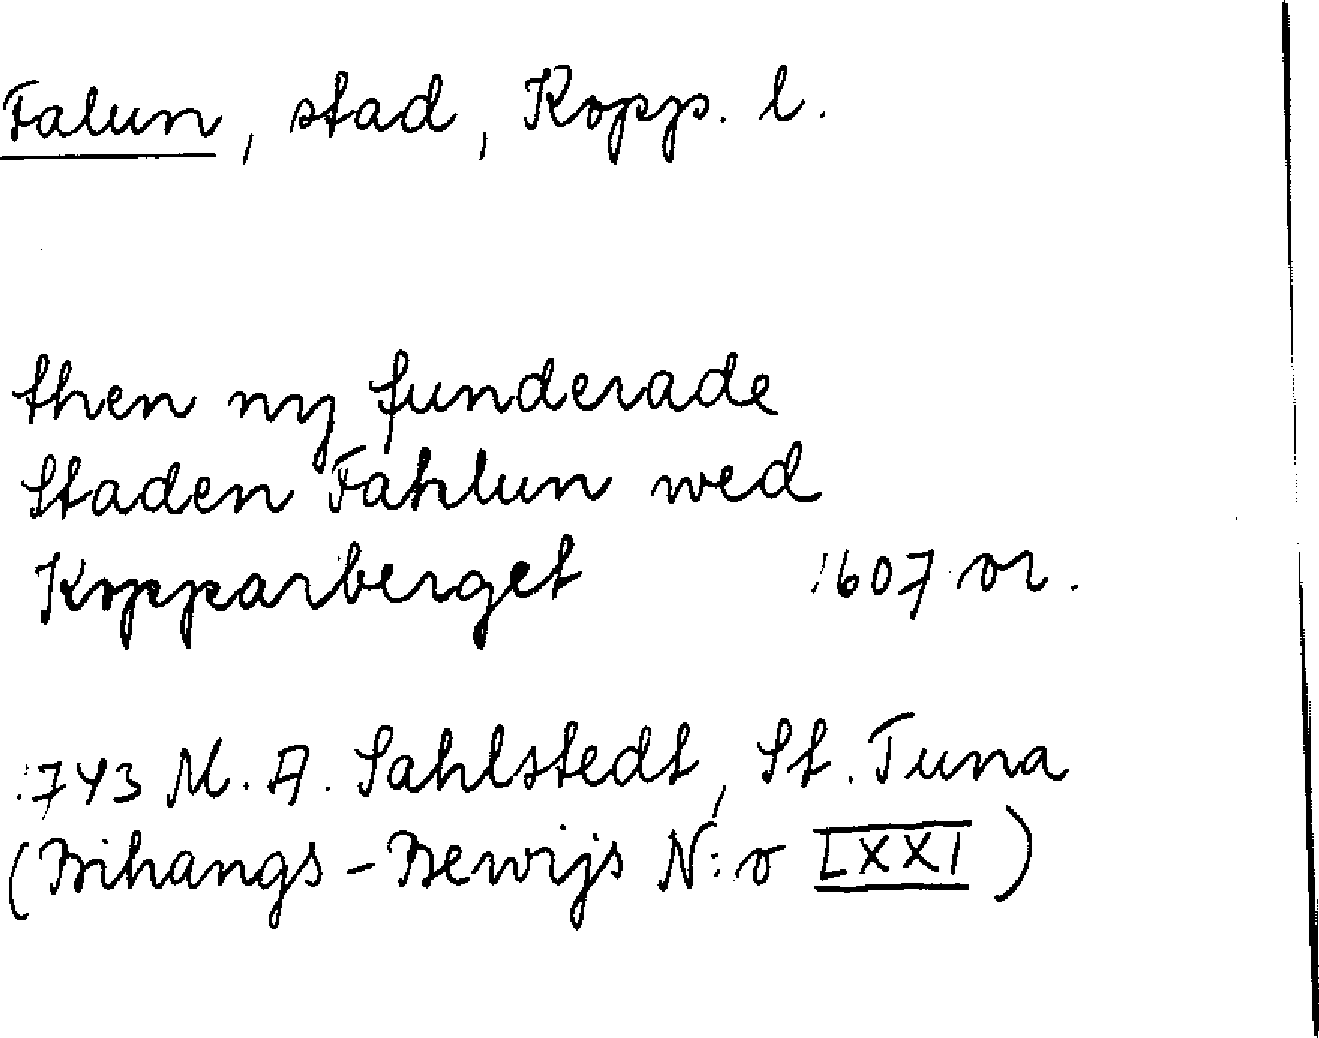 Falun, stad, Kopp. l.
then ny funderade
Staden Fahlun wed
Kopparberget 1607 or.
1743 M. A. Sahlstedt, St. Tuna
(Bihangs-Bewijs N:o LXXI)